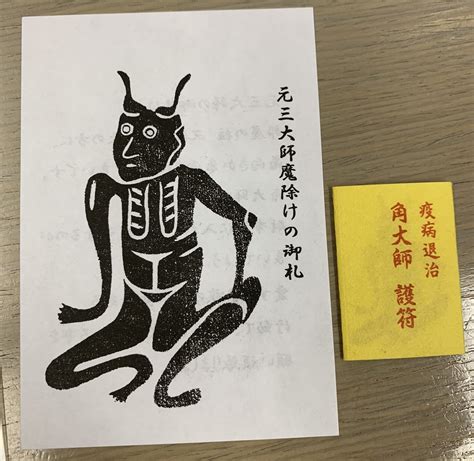 元三大師魔除けの御札
疫病退治
角大師 護符